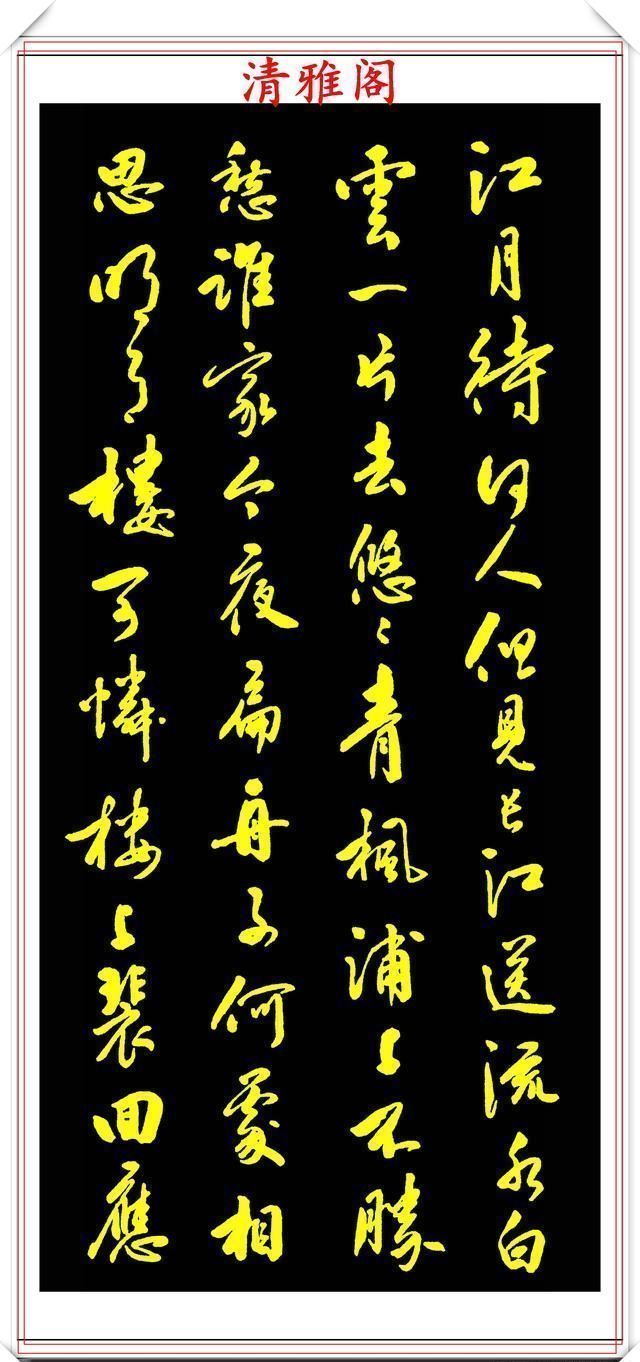 清雅阁
江月待何人但見長江送流水白
雲一片去悠〻青楓浦上不勝
愁誰家今夜扁舟子何處相
思明月樓可憐楼上裴回應